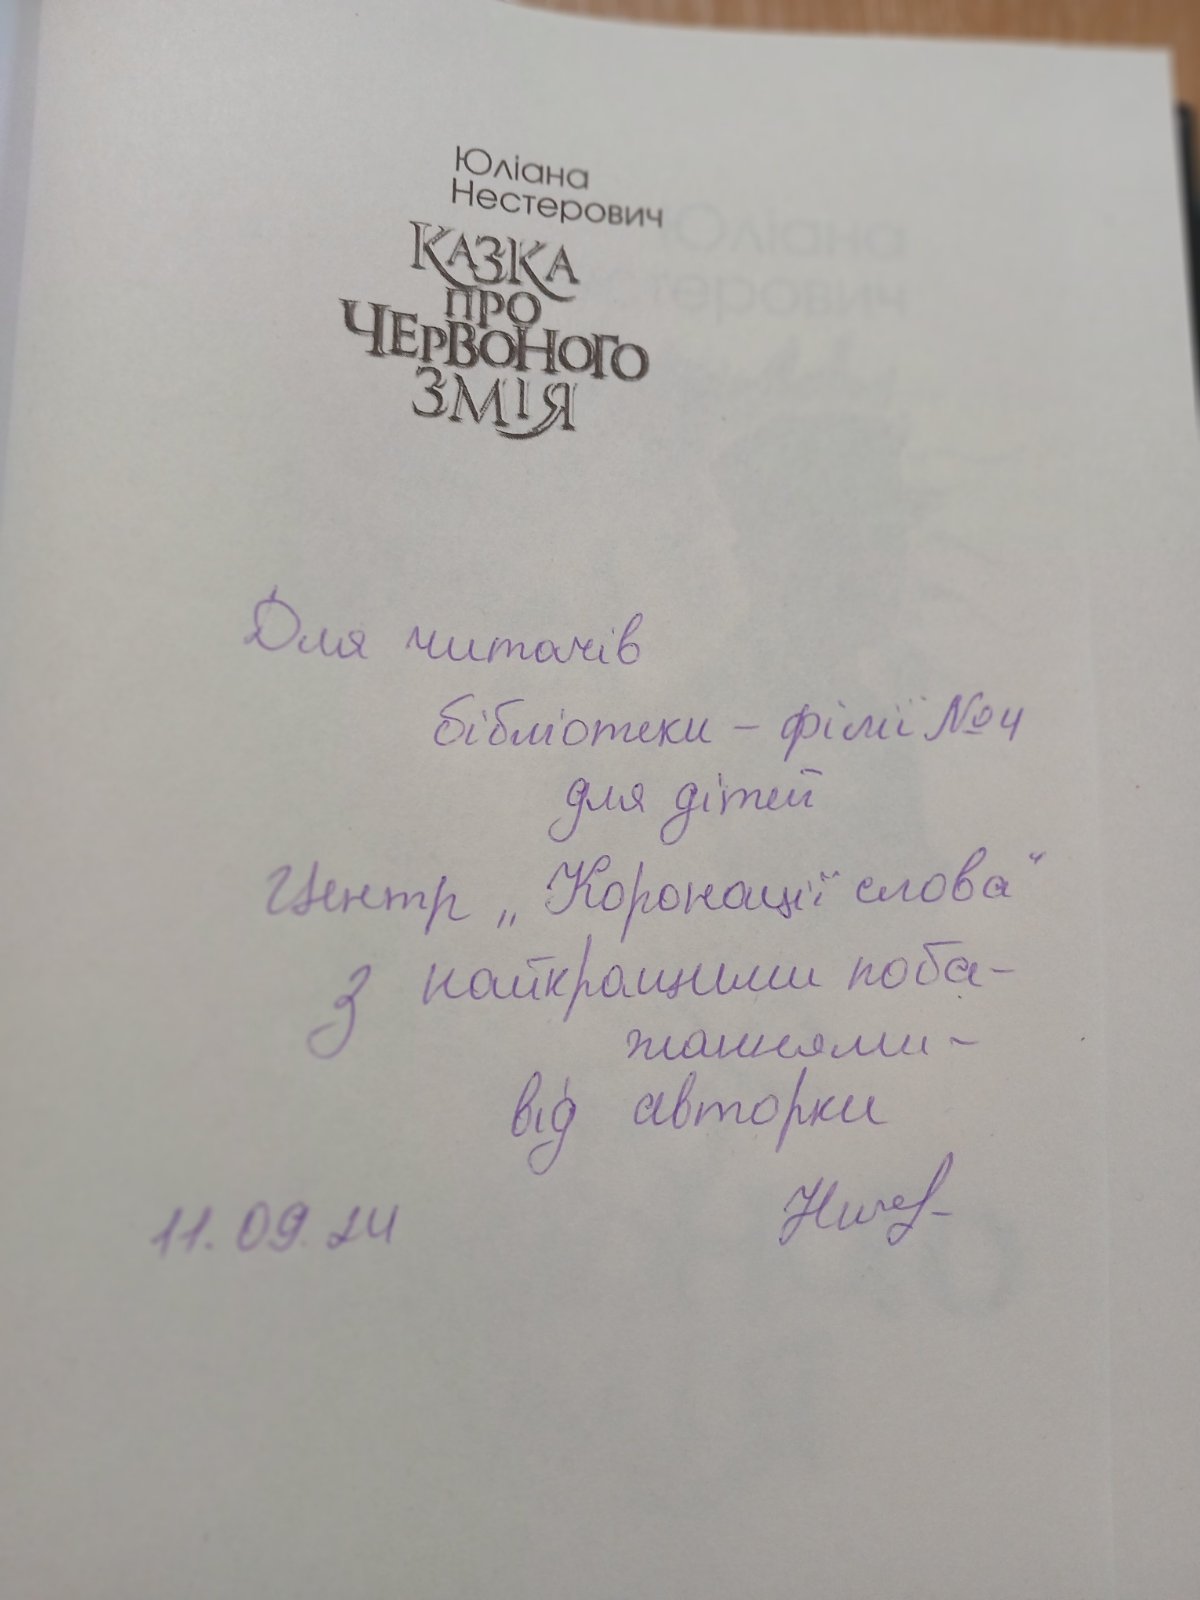 Юліана
Нестерович
КАЗКА
ПРО
ЧЕРВОНОГО
ЗМІЯ
Для читачів
бібліотеки - філії №4
для дітей
Центр „Коронації слова"
З найкращими поба-
жаннями -
від авторки
11.09.24